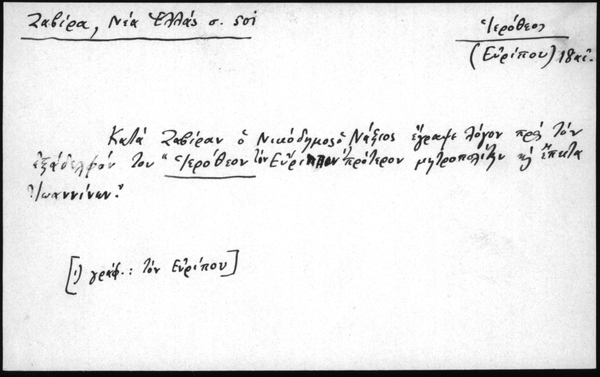 Ζαβίρα, Νέα Ἑλλάς σ. 501
Ἱερόθεος
(Εὐρίπου) 18 αἰ.
Κατά Ζαβίραν ὁ Νικόδημος ὁ Νάξιος ἔγραψε λόγον πρός τόν
ἐξάδελφόν του "Ἱερόθεον τόν Εὐρίππον πρότερον μητροπολίτην κ ἔπειτα
Ἰωαννίνων."
[1) γράφ.: τόν Εὐρίπου]